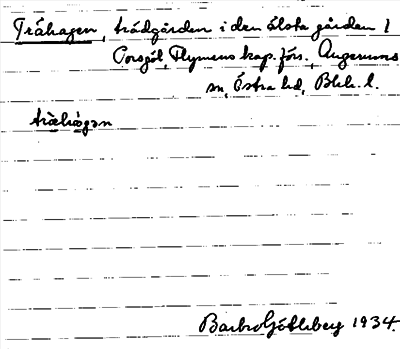 Trähagen, trädgården i den älsta gården i
Porsgöl, Flymens kap. förs., Augerums
sn, Östra hd, Blek. l.
trähagan
1934.